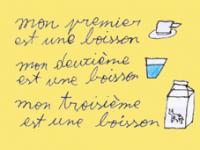 mon premier
est une boisson
mon deuxième
est une boisson
mon troisième
est une boisson